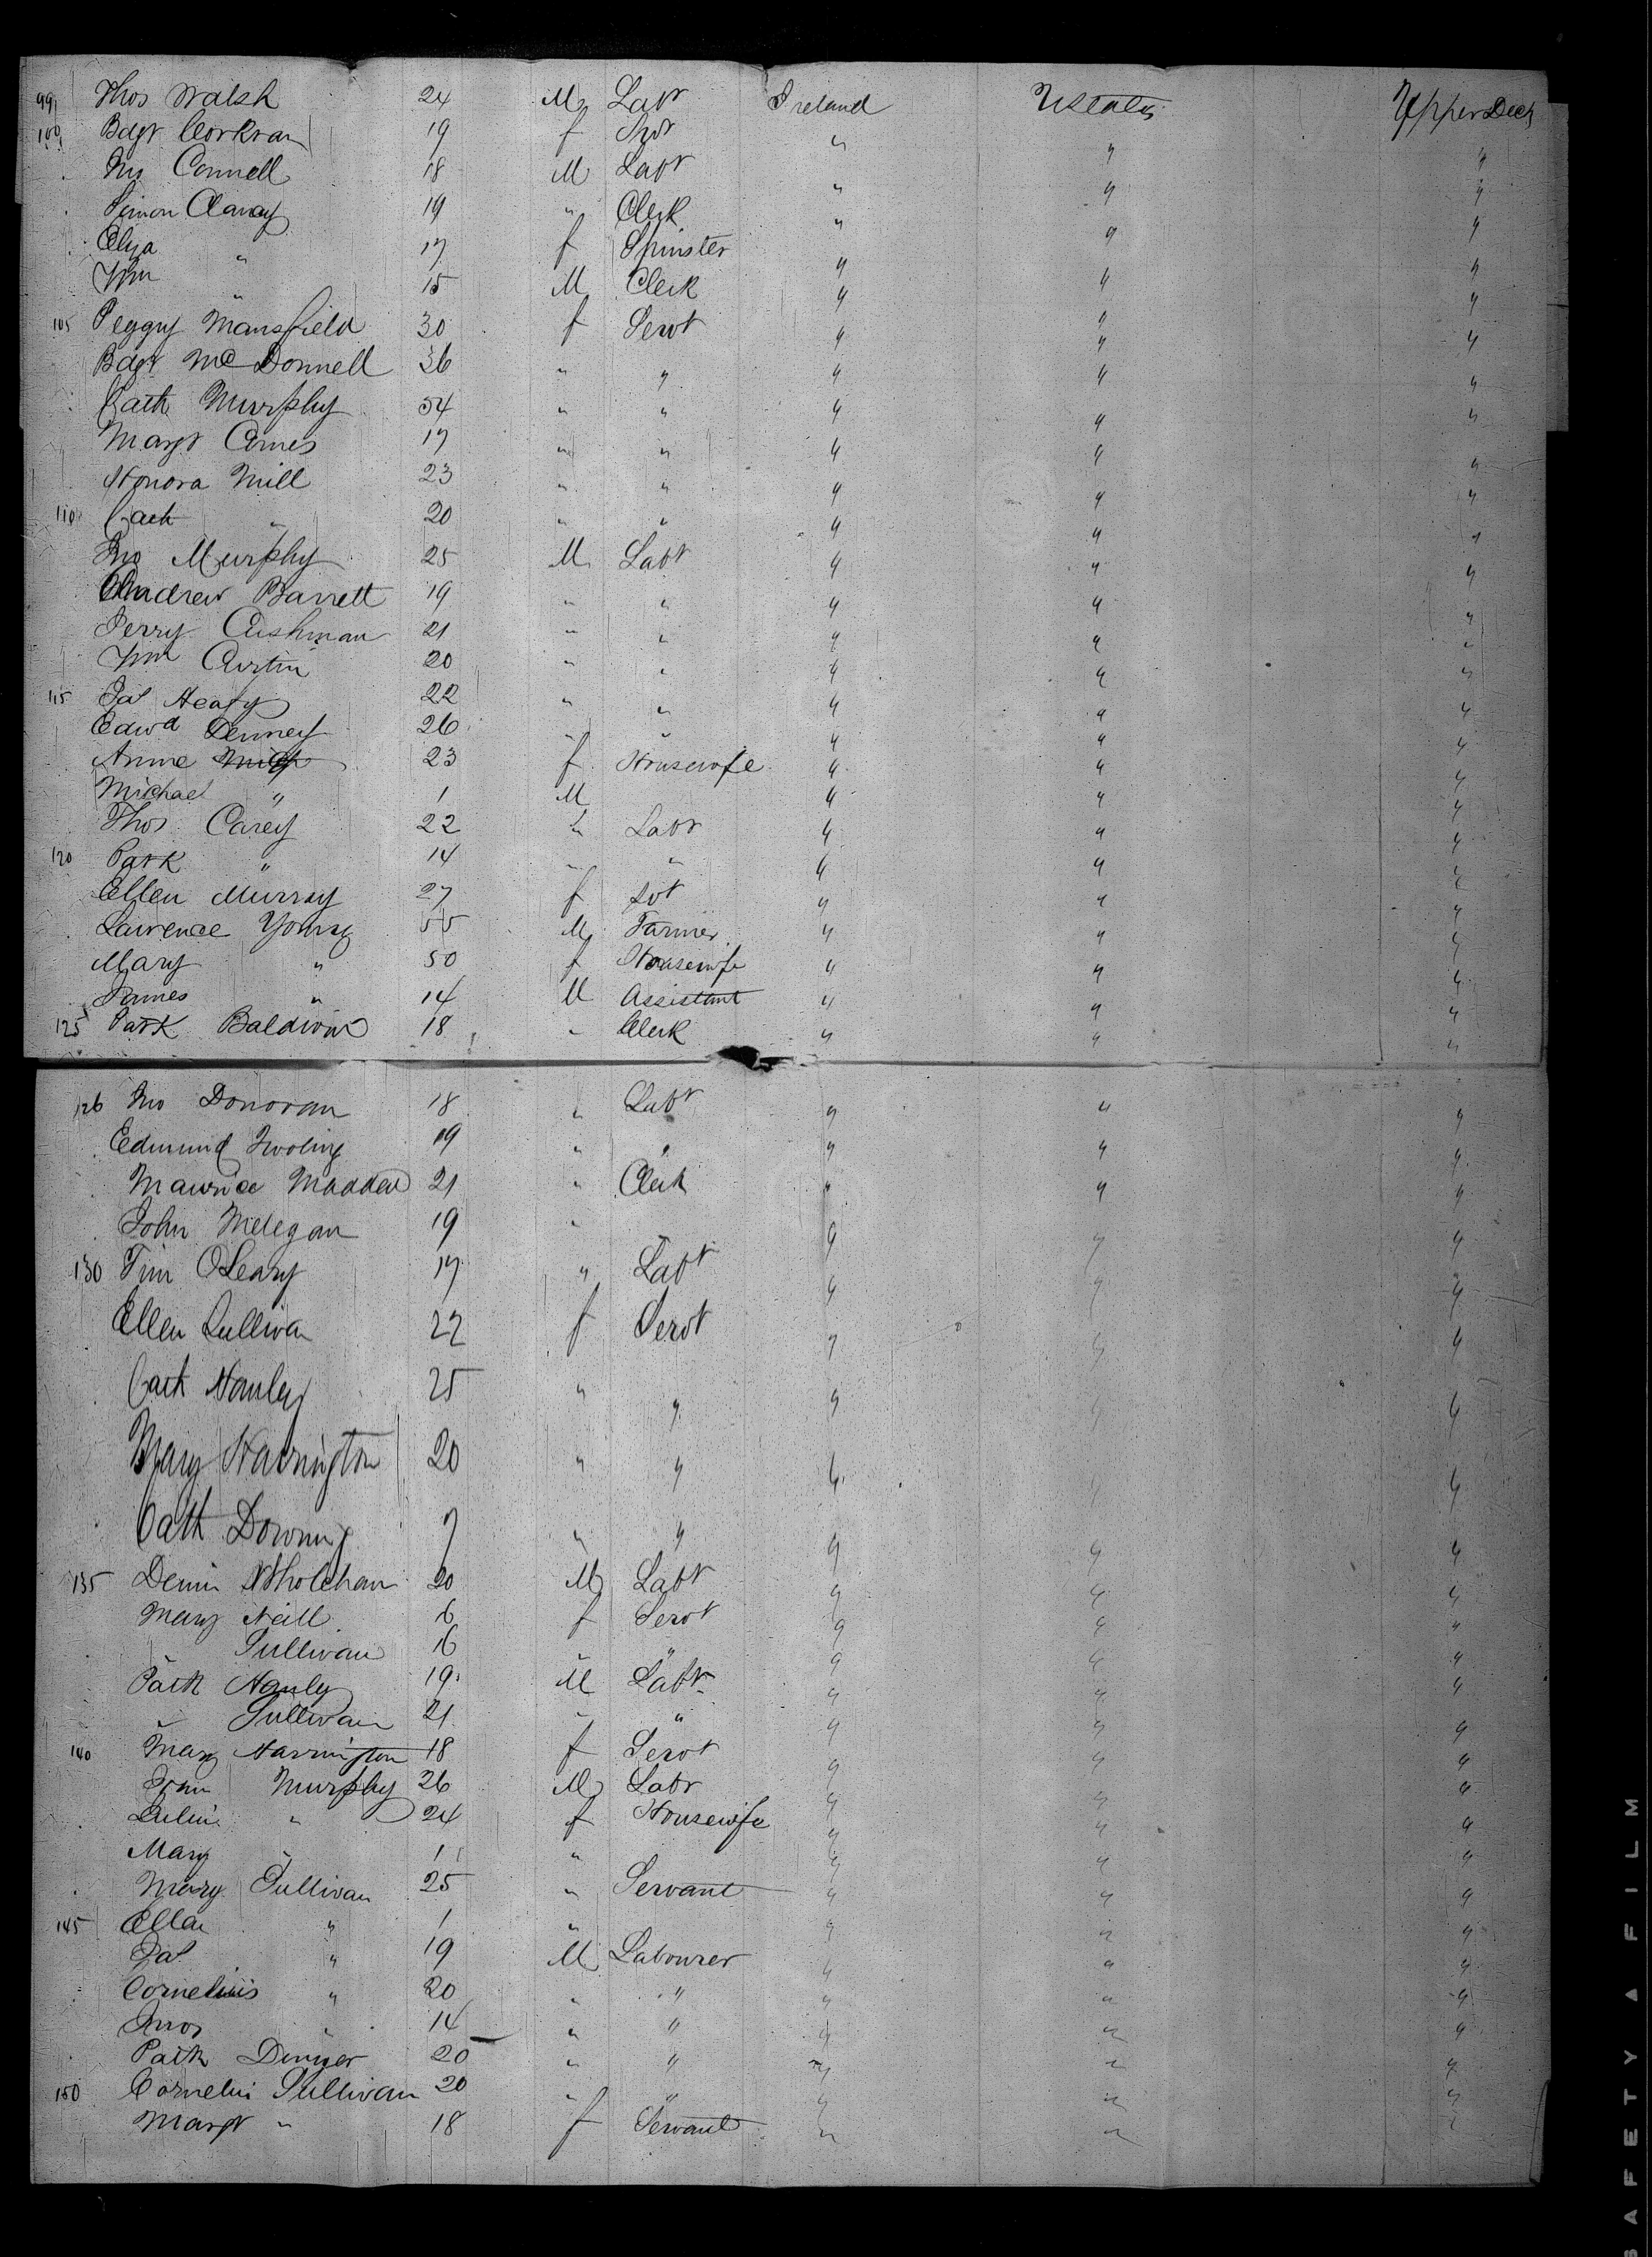 99 Thos Walsh 24 M Labr Ireland UStates Upper Deck
100 Bdgt Corkran 19 f Srvt " " "
Jno Connell 18 M Labr " " "
Simon Clancy 19 " Clerk " " "
Eliza " 17 f Spinster " " "
Wm " 15 M Clerk " " "
105 Peggy Mansfield 30 f Servt " " "
Bdgt McDonnell 36 " " " " "
Cath Murphy 54 " " " " "
Margt 17 " " " " "
Honora Mill 23 " " " " "
110 Cath " 20 " " " " "
Jno Murphy 25 M Labr " " "
Andrew Barrett 19 " " " " "
Jerry Cushman 21 " " " " "
Wm Curtin 20 " " " " "
115 Pat Heafy 22 " " " " "
Edwd Denney 26 " " " " "
Anne 23 f Housewife " " "
Michael " 1 M " " "
Thos Carey 22 " Labr " " "
120 Patk " 14 " " " " "
Ellen Murray 27 f Svt " " "
Lawrence Young 55 M Farmer " " "
Mary " 50 f Housewife " " "
James " 14 M Assistant " " "
125 Patk Baldwin 18 " Clerk " " "
126 Jno Donovan 18 " Labr " " "
Edmund 19 " " " " "
Maurice Madden 21 " Clerk " " "
John Melegan 19 " " " " "
130 Tim OLeary 17 " Labr " " "
Ellen Sullivan 22 f Servt " " "
Cath Hanley 25 " " " " "
Mary Harrington 20 " " " " "
Cath Downing 7 " " " " "
135 Denis 20 M Labr " " "
Mary Neill 6 f Servt " " "
" Sullivan 16 " " " " "
Patk Hanly 19 M Labr " " "
" Sullivan 21 " " " " "
140 Mary Harrington 18 f Servt " " "
Murphy 26 M Labr " " "
" 24 f Housewife " " "
Mary " 1 " " " "
Mary Sullivan 25 " Servant " " "
145 Ellen " 1 " " " "
Pat " 19 M Labourer " " "
Cornelius " 20 " " " " "
" 14 " " " " "
Patk 20 " " " " "
150 Cornelius Sullivan 20 " " " " "
Margt " 18 f Servant " " "
SAFETY FILM